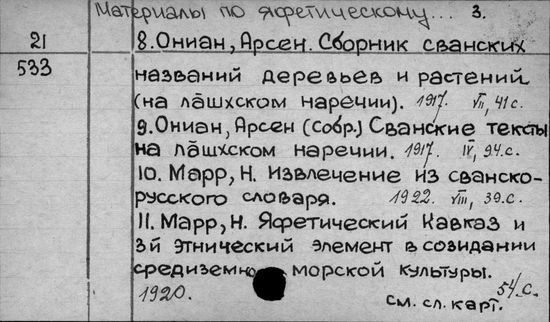 Материалы по яфетическому... 3.
21 8. Ониан, Арсен. Сборник сванских
533 названий деревьев и растений
(на лāшхском наречии). 1917. VII, 41 с.
9. Ониан, Арсен (Собр.) Сванские тексты
на лāшхском наречии. 1917. IV, 94. с.
10. Марр, Н. Извлечение из сванско-
русского словаря. 1922. VIII, 39. с.
11. Марр, Н. Яфетический Кавказ и
3й этнический элемент в созидании
средиземно морской культуры.
1920. 54. с.
См. сл. карт.